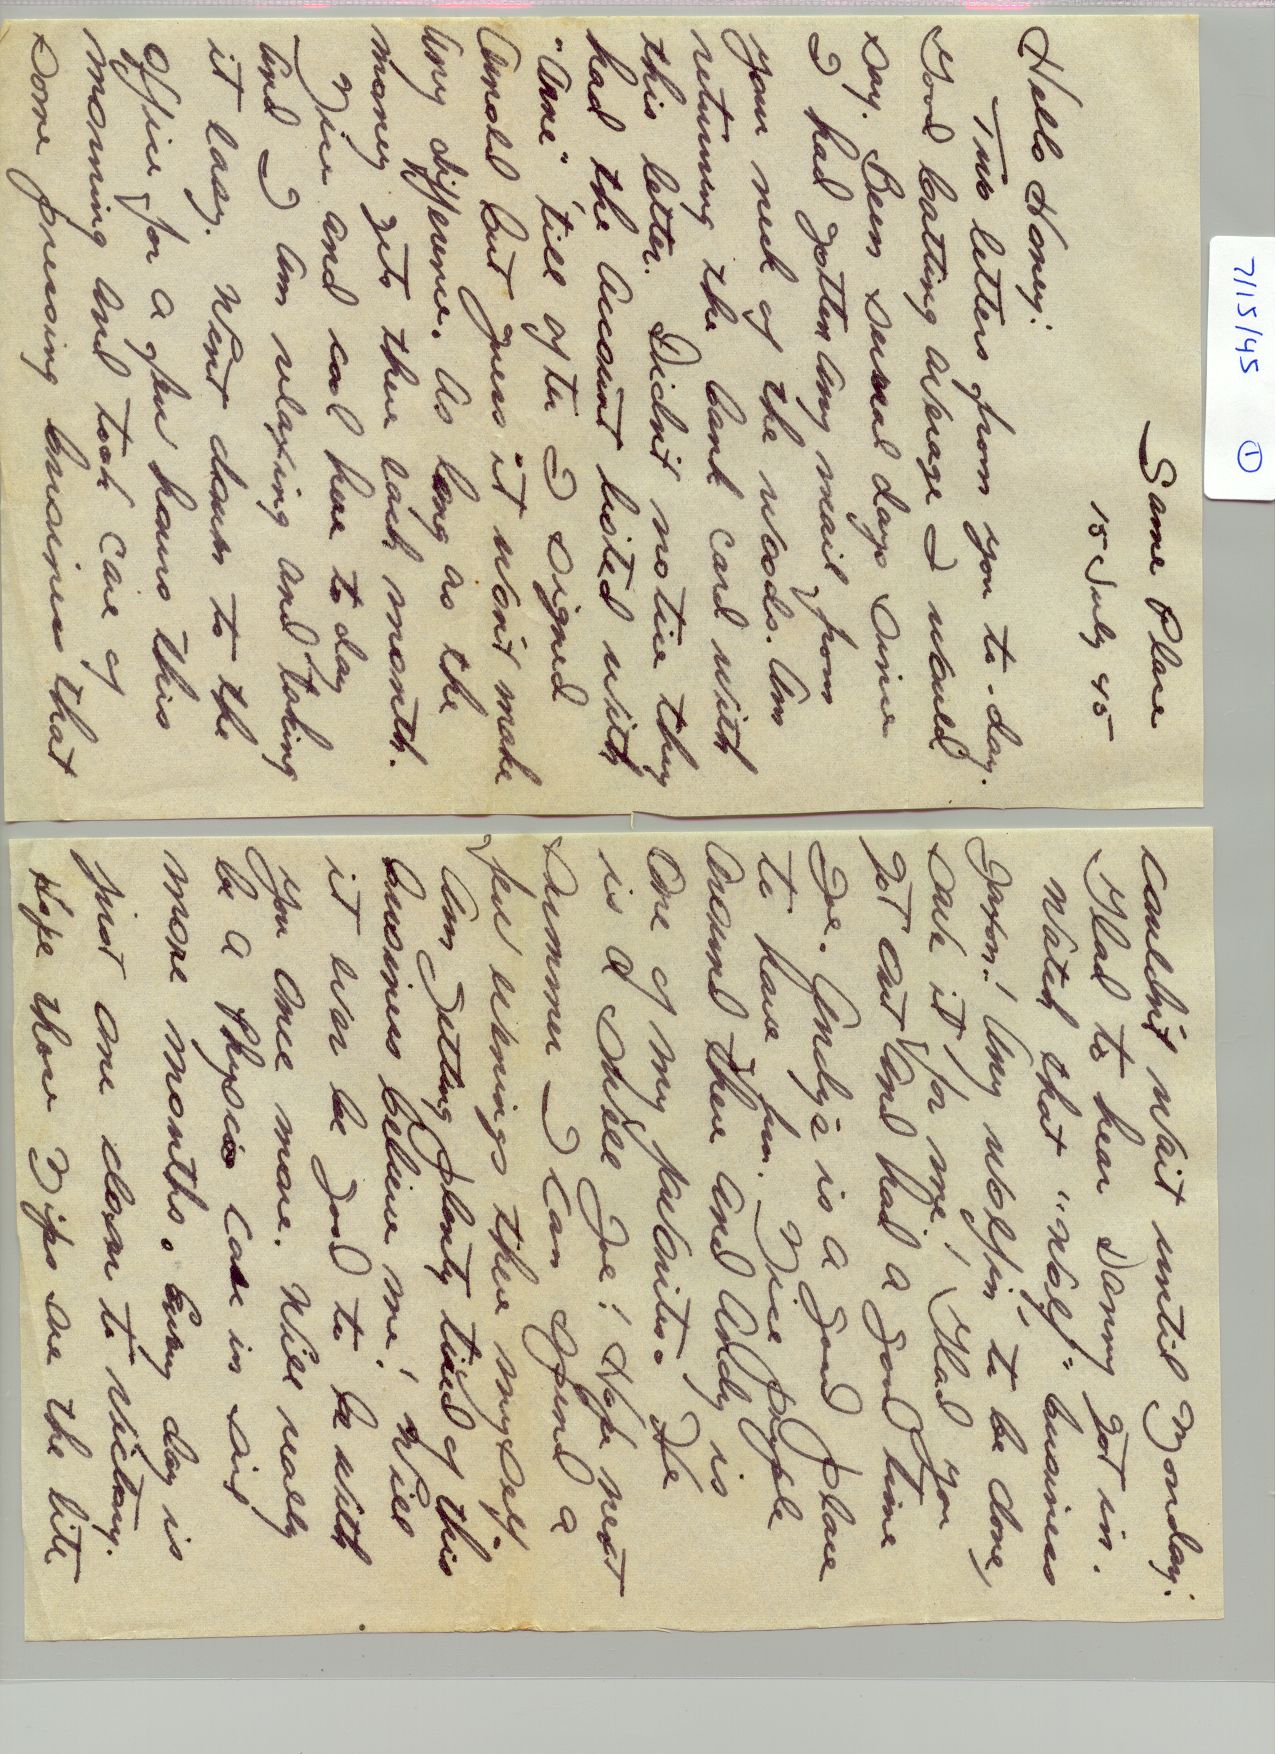 7/15/45 ①
Same Place
15 July 45
Hello Honey:
Two letters from you to-day.
Good batting average I would
say. Been several days since
I had gotten any mail from
your neck of the woods. Am
returning the bank card with
this letter. Didn't notice they
had the account listed with
"Arne" till after I signed
Arnold but guess it won't make
any difference. As long as the
money gets there each month.
Nice and cool here to day
and I am relaxing and taking
it easy. Went down to the
office for a few hours this
morning and took care of
some pressing business that
couldn't wait until Monday.
Glad to hear Danny got in.
Watch that "wolf" business
! Any wolfin' to be done,
save it for me! Glad you
got out and had a good time
Joe. Andy's is a good place
to have fun. Nice people
around there and Andy is
one of my favorites. He
is a swell Joe! Hope next
summer I can spend a
few evenings there myself.
Am getting plenty tired of this
business believe me! Will
it ever be good to be with
you once more. Will really
be a physcio case in six
more months. Every day is
just one closer to victory.
Hope those Nips see the lite